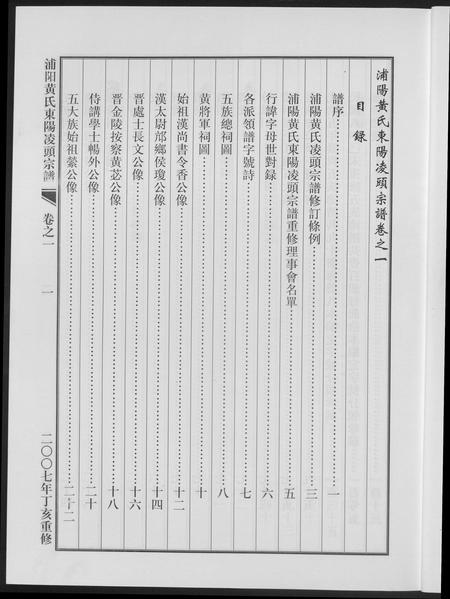 浦陽黃氏東陽凌頭宗譜卷之一
目錄
譜序……一
浦陽黃氏凌頭宗譜修訂條例……三
浦陽黃氏東陽凌頭宗譜重修理事會名單……五
行諱字母世對録……六
各派領譜字號詩……七
五族總祠圖……八
黃將軍祠圖……十
始祖漢尚書令香公像……十二
漢太尉邟鄉侯瓊公像……十四
晋處士長文公像……十六
晋金陵按察黃苾公像……十八
侍講學士暢外公像……二十
五大族始祖蘩公像……二十二
浦阳黃氏東陽凌頭宗譜
卷之一
一
二〇〇七年丁亥重修